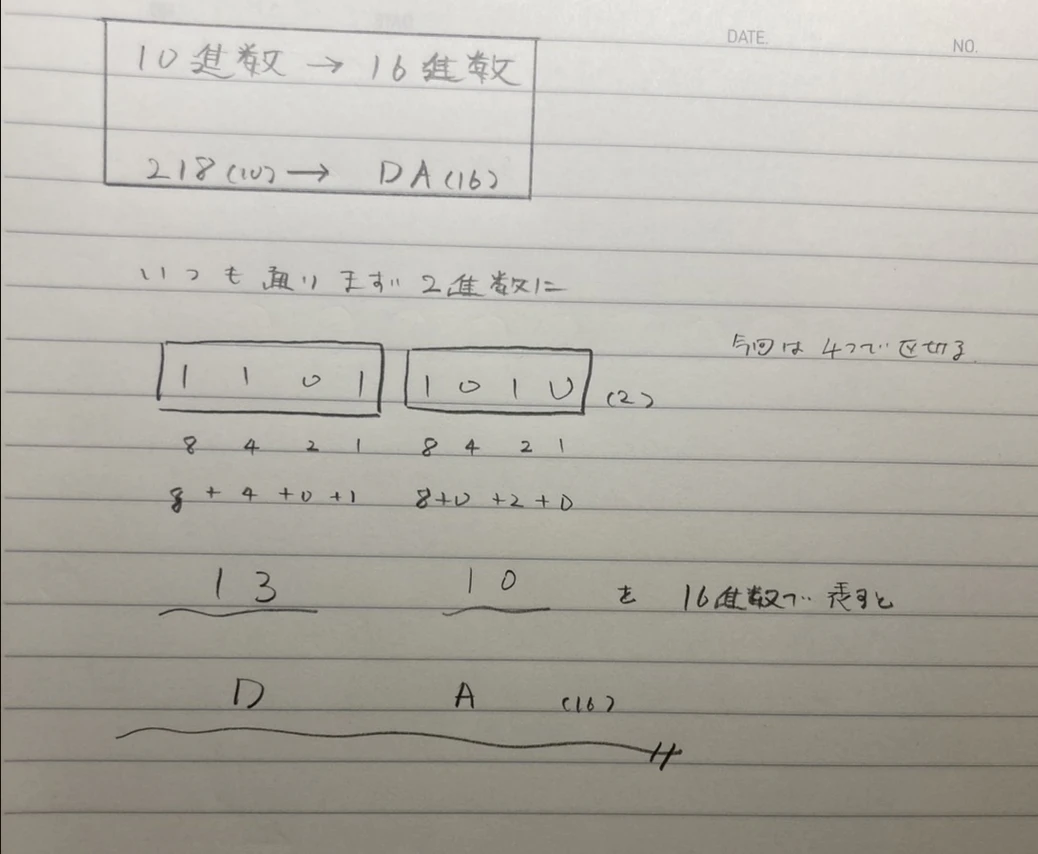 DATE.
NO.
10進数 → 16進数
218(10) → DA(16)
いつも通りまずい2進数に
今回は4つで区切る
1 1 0 1 1 0 1 0 (2)
8 4 2 1 8 4 2 1
8 + 4 + 0 + 1 8 + 0 + 2 + 0
13 10 を 16進数で表すと
D A (16)